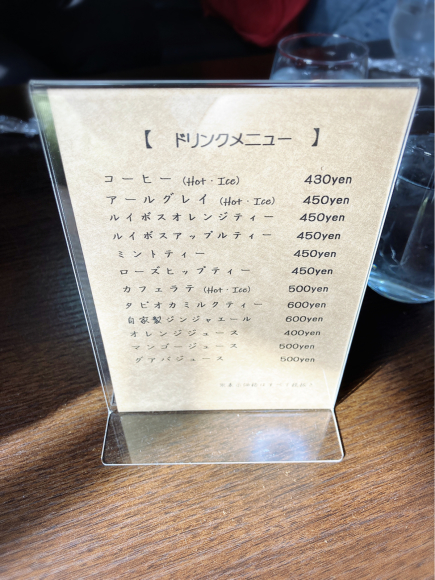 【 ドリンクメニュー 】
コーヒー (Hot・Ice) 430yen
アールグレイ (Hot・Ice) 450yen
ルイボスオレンジティー 450yen
ルイボスアップルティー 450yen
ミントティー 450yen
ローズヒップティー 450yen
カフェラテ (Hot・Ice) 500yen
タピオカミルクティー 600yen
自家製ジンジャエール 600yen
オレンジジュース 400yen
マンゴージュース 500yen
グアバジュース 500yen